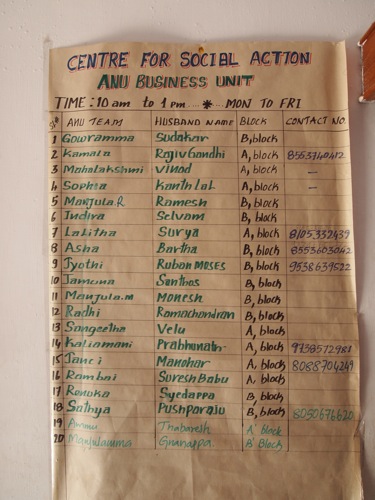 CENTRE FOR SOCIAL ACTION
ANU BUSINESS UNIT
TIME : 10 am to 1 pm .... * ... MON TO FRI
ANU TEAM HUSBAND NAME BLOCK CONTACT NO.
1 Gowramma Sudakar B, block
2 Kamala Rajiv Gandhi A, block 8553740412
3 Mahalakshmi Vinod A, block –
4 Sophia Kanthlal A, block –
5 Manjula.R Ramesh B, block
6 Indira Selvam B, block
7 Lalitha Surya A, block 8105332439
8 Asha Bartha B, block 8553603042
9 Jyothi Ruban MOSES B, block 9538639522
10 Jamuna Santhos B, block
11 Manjula.m Monesh B, block
12 Radhi Ramachandran B, block
13 Sangeetha Velu A, block
14 Kaliamani Prabhunath A, block 9738572981
15 Janci Manohar A, block 8088704249
16 Rambai Suresh Babu A, block
17 Renuka Syedappa B, block
18 Sathya Pushparaju B, block 8050676620
19 Ammu Thabaresh A' block
20 Manjulamma Gnanappa B' Block